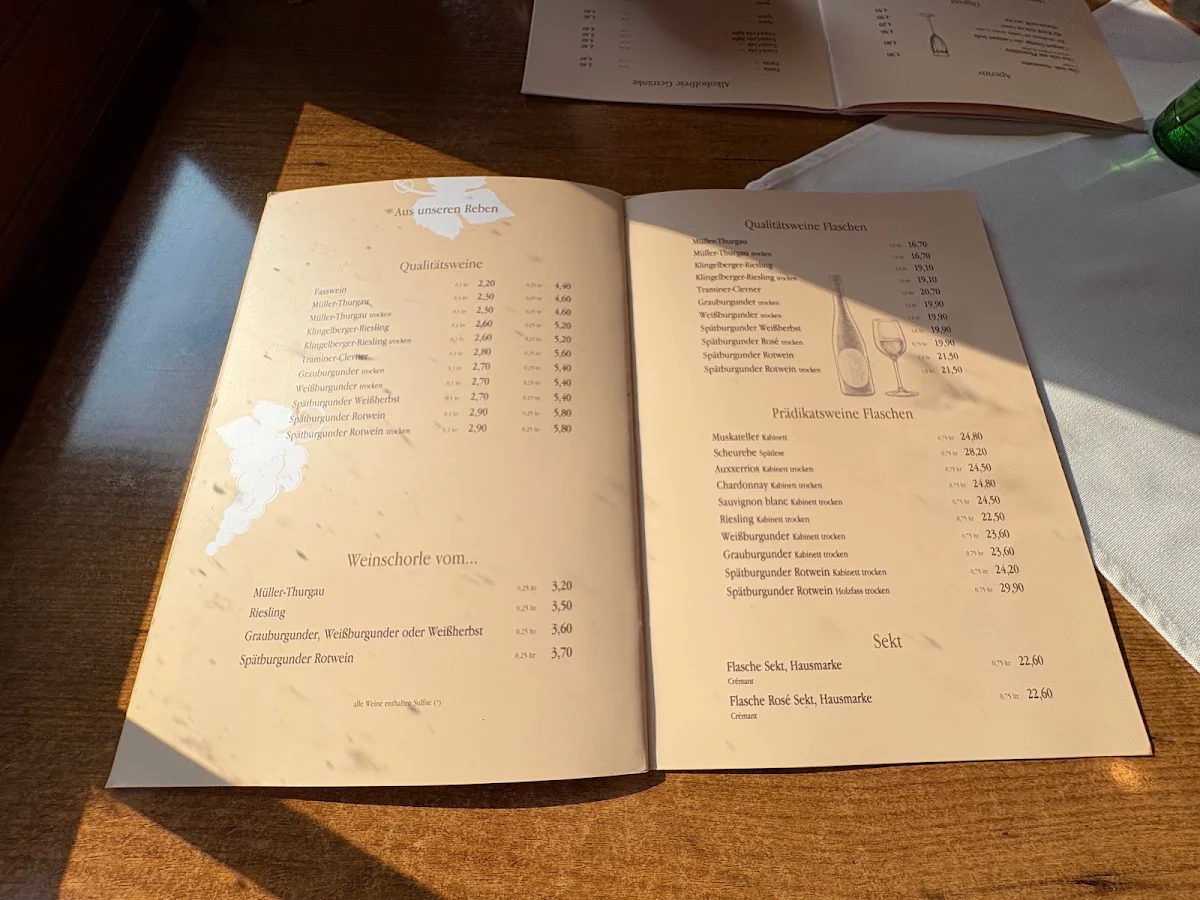 Aus unseren Reben
Qualitätsweine
Fasswein 0,1 ltr 2,20 0,25 ltr 4,40
Müller-Thurgau 0,1 ltr 2,30 0,25 ltr 4,60
Müller-Thurgau trocken 0,1 ltr 2,30 0,25 ltr 4,60
Klingelberger-Riesling 0,1 ltr 2,60 0,25 ltr 5,20
Klingelberger-Riesling trocken 0,1 ltr 2,60 0,25 ltr 5,20
Traminer-Clevner 0,1 ltr 2,80 0,25 ltr 5,60
Grauburgunder trocken 0,1 ltr 2,70 0,25 ltr 5,40
Weißburgunder trocken 0,1 ltr 2,70 0,25 ltr 5,40
Spätburgunder Weißherbst 0,1 ltr 2,70 0,25 ltr 5,40
Spätburgunder Rotwein 0,1 ltr 2,90 0,25 ltr 5,80
Spätburgunder Rotwein trocken 0,1 ltr 2,90 0,25 ltr 5,80
Weinschorle vom...
Müller-Thurgau 0,25 ltr 3,20
Riesling 0,25 ltr 3,50
Grauburgunder, Weißburgunder oder Weißherbst 0,25 ltr 3,60
Spätburgunder Rotwein 0,25 ltr 3,70
alle Weine enthalten Sulfite (7)
Qualitätsweine Flaschen
Müller-Thurgau 1,0 ltr 16,70
Müller-Thurgau trocken 1,0 ltr 16,70
Klingelberger-Riesling 1,0 ltr 19,10
Klingelberger-Riesling trocken 1,0 ltr 19,10
Traminer-Clevner 1,0 ltr 20,70
Grauburgunder trocken 1,0 ltr 19,90
Weißburgunder trocken 1,0 ltr 19,90
Spätburgunder Weißherbst 1,0 ltr 19,90
Spätburgunder Rosé trocken 0,75 ltr 19,90
Spätburgunder Rotwein 1,0 ltr 21,50
Spätburgunder Rotwein trocken 1,0 ltr 21,50
Prädikatsweine Flaschen
Muskateller Kabinett 0,75 ltr 24,80
Scheurebe Spätlese 0,75 ltr 28,20
Auxxerrios Kabinett trocken 0,75 ltr 24,50
Chardonnay Kabinett trocken 0,75 ltr 24,80
Sauvignon blanc Kabinett trocken 0,75 ltr 24,50
Riesling Kabinett trocken 0,75 ltr 22,50
Weißburgunder Kabinett trocken 0,75 ltr 23,60
Grauburgunder Kabinett trocken 0,75 ltr 23,60
Spätburgunder Rotwein Kabinett trocken 0,75 ltr 24,20
Spätburgunder Rotwein Holzfass trocken 0,75 ltr 29,90
Sekt
Flasche Sekt, Hausmarke 0,75 ltr 22,60
Crémant
Flasche Rosé Sekt, Hausmarke 0,75 ltr 22,60
Crémant
Alkoholfreie Getränke
Aperitiv